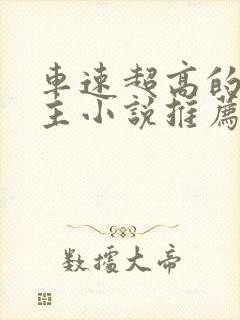 車速超高的
主小說推薦
數據大帝